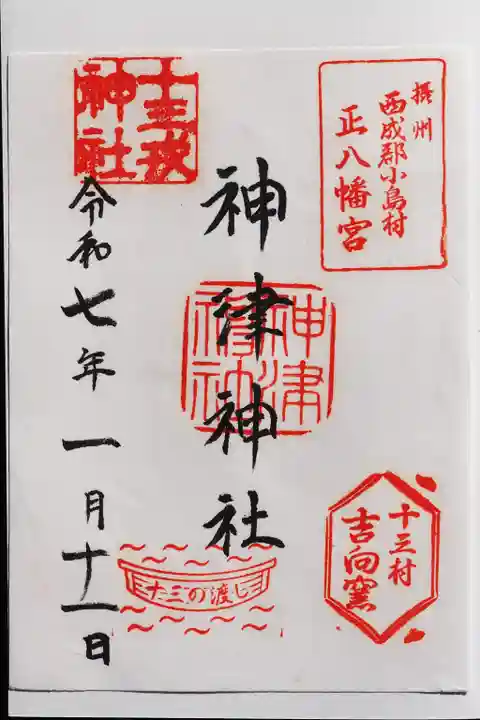 摂州
西成郡小島村
正八幡宮
神津神社
神津
神社
十三村
吉向窯
十三戎
神社
令和七年一月十一日
十三の渡し